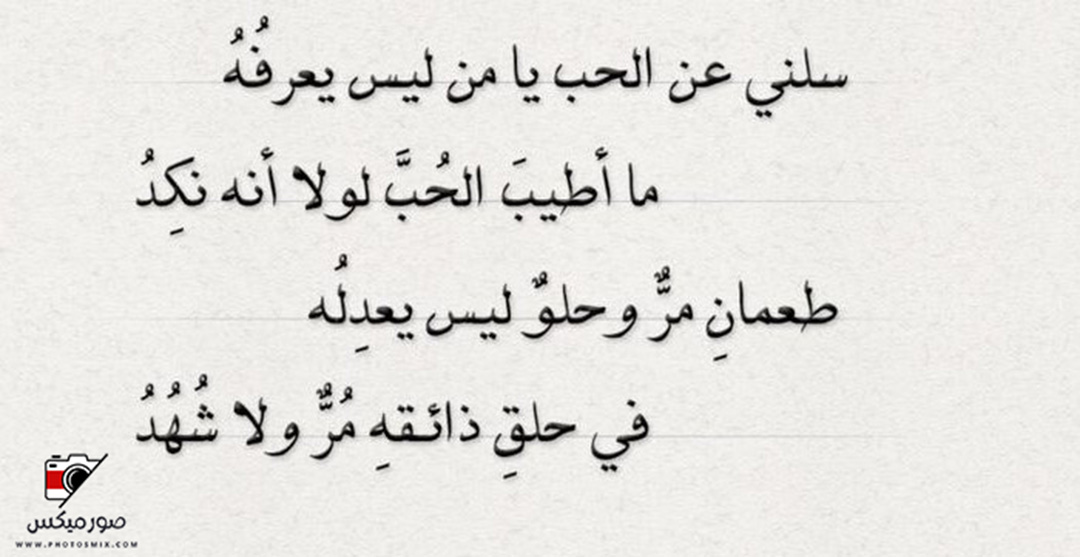 سلني عن الحب يا من ليس يعرفُهُ
ما أطيبَ الحُبَّ لولا أنه نكِدُ
طعمانِ مرٌّ وحلوٌ ليس يعدِلُه
في حلقِ ذائقهِ مُرٌّ ولا شُهُدُ
صورميكس
WWW.PHOTOSMIX.COM